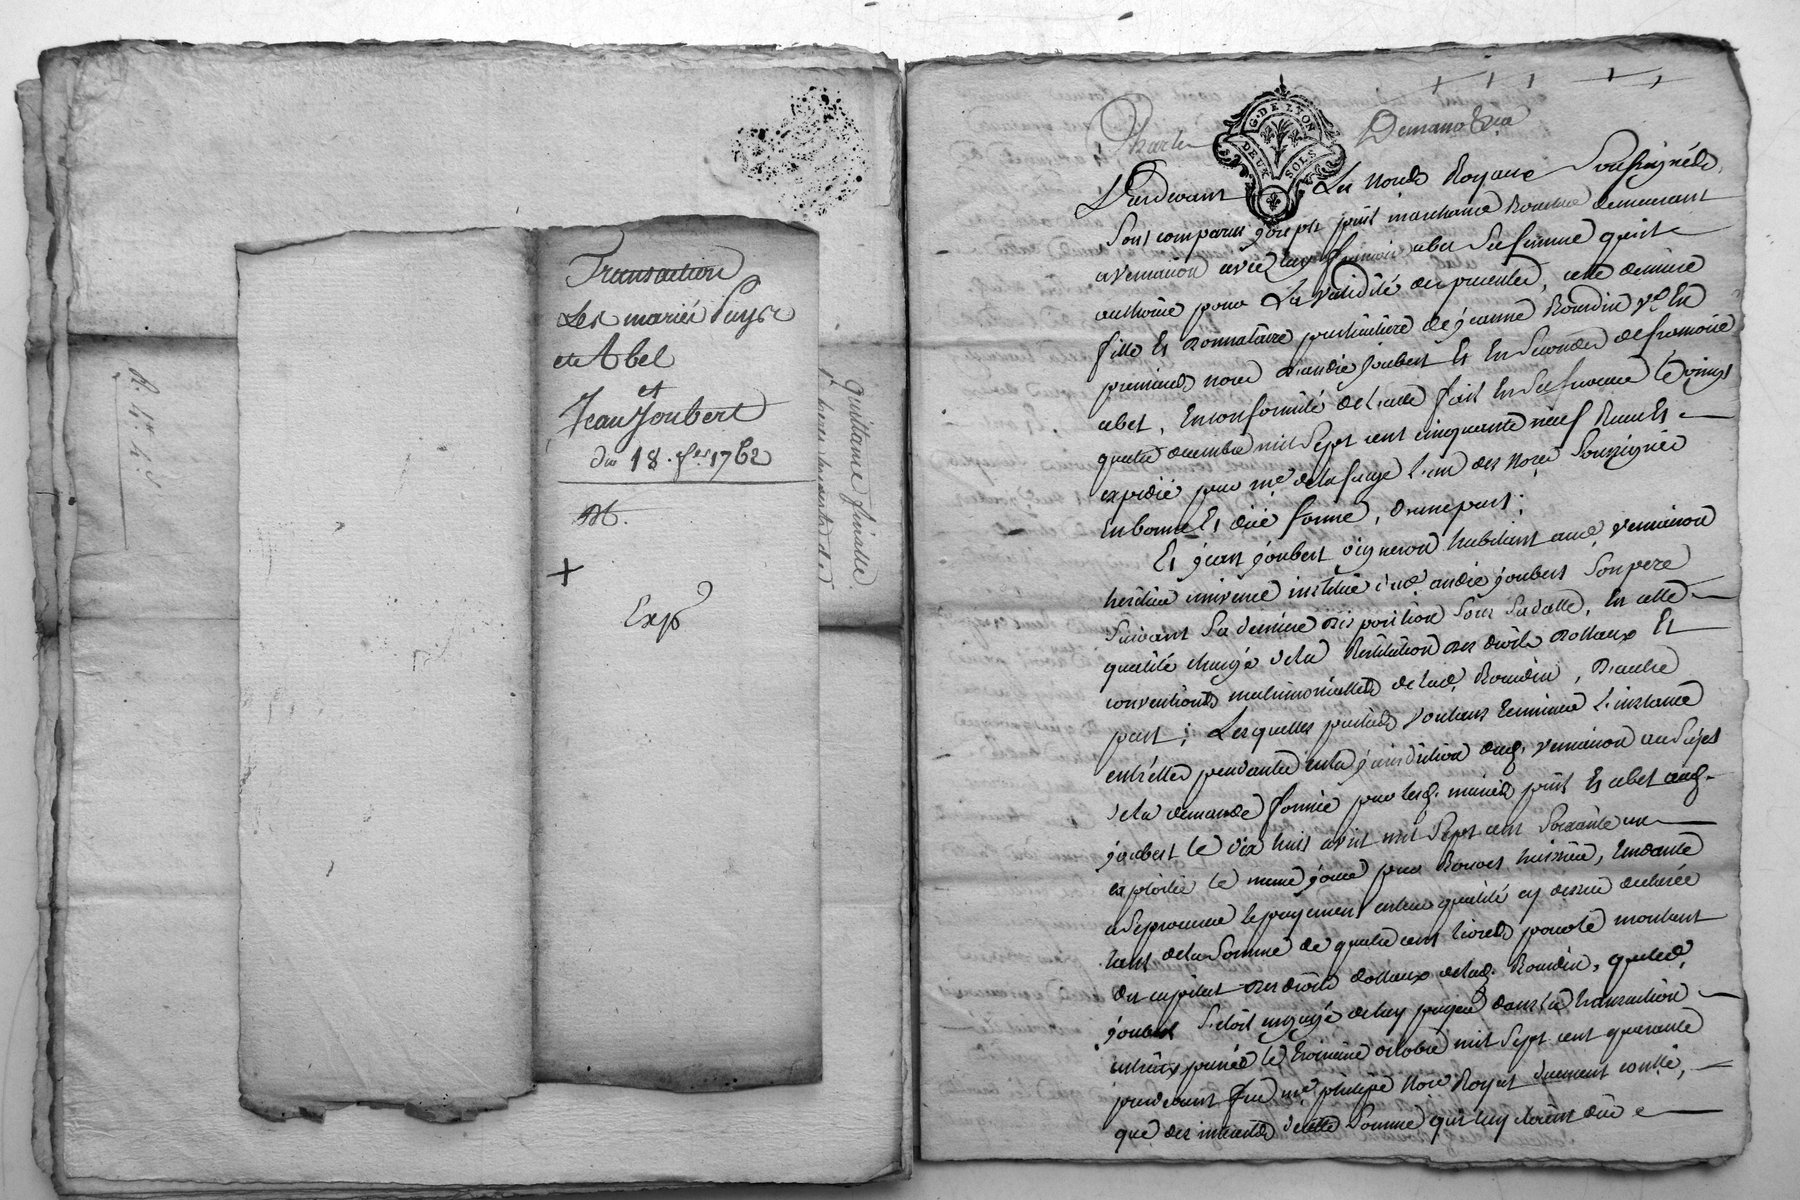 Transaction
Les mariés Puys
et Abel
et
Jean Joubert
du 18. fer 1762
Exp
quittance finalle
G. DE LYON
DEUX SOLS
Pardevant Les Nores Royaux Soussignés,
Sont comparus joseph puis marchand demeurant
a vernaison avec abel Sa femme qu'il
authorise pour La validité des presentes, cette derniere
fille Et donnataire particuliere de jeanne Rondin Ve En
premieres noces d'andré joubert Et En Secondes de françois
abel, En conformité de l'acte fait En Sa faveur le vingt
quatre decembre mil Sept cent cinquante neuf Receu Et
expedié par me delafarge l'un des Nores Soussignés
En bonne Et düe forme, d'une part;
Et jean joubert vigneron habitant aud. vernaison
heritier universel institué dud. andré joubert Son pere
Suivant Sa derniere disposition Sous Sa datte, En cette
qualité chargé de la Restitution des droits dottaux Et
conventions matrimonialles de lad. Rondin, D'autre
part; Lesquelles parties voulant terminer L'instance
entr'elles pendante en la jurisdiction dud. vernaison au Sujet
de la demande formée par lesd. mariés puis Et abel aud.
joubert le dix huit avril mil Sept cent Soixante un
exploité le meme jour par huissier, tendante
a Se procurer le payement en leur qualité cy dessus
tant de la Somme de quatre cent livres pour le montant
du capital des droits dottaux de lad. Rondin, que led.
joubert S'étoit engagé de luy payer dans la transaction
entr'eux passée le troisieme octobre mil Sept cent quarante
pardevant feu me philipe Nore Royal duement conllé,
que des interets de cette Somme qui luy étoient düs